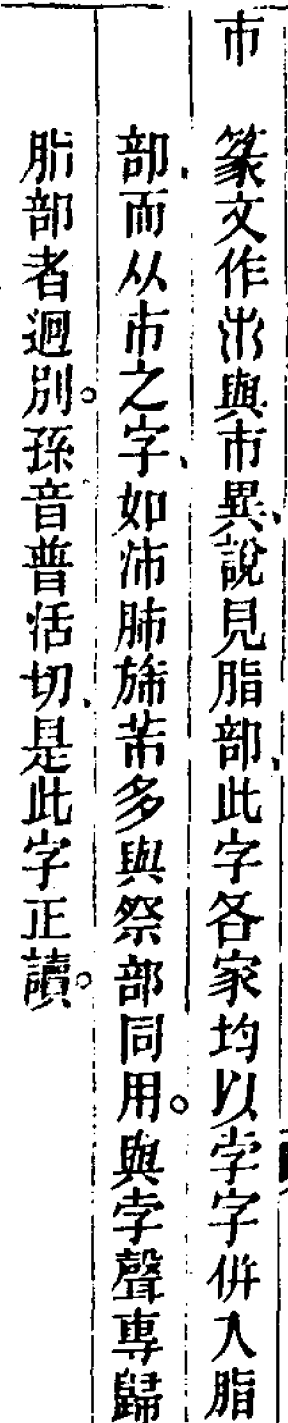 巿　篆文作𣎵、與市異、說見脂部、此字各家均以孛字併入脂
部、而从巿之字、如沛肺旆芾多與祭部同用。與孛聲專歸
脂部者迥別。孫音普活切、是此字正讀。